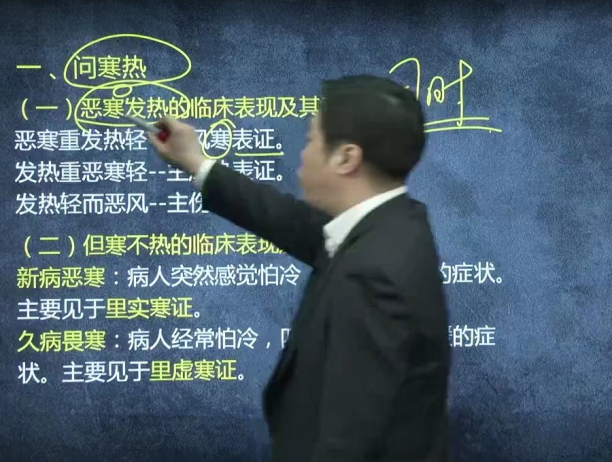 一、问寒热
（一）恶寒发热的临床表现及其
恶寒重发热轻 风寒表证。
发热重恶寒轻--主 表证。
发热轻而恶风--主伤
（二）但寒不热的临床表现
新病恶寒：病人突然感觉怕冷 的症状。
主要见于里实寒证。
久病畏寒：病人经常怕冷， 的症
状。主要见于里虚寒证。